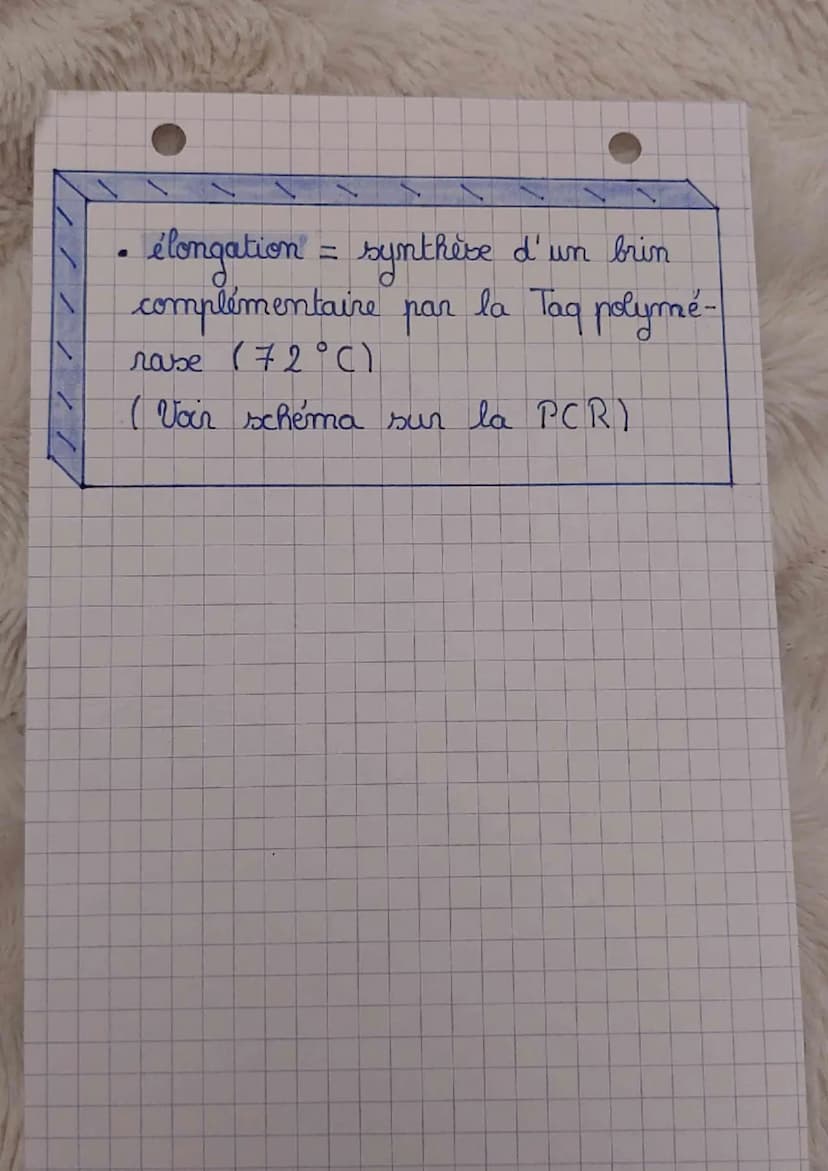 • élongation = synthèse d'un brin
complémentaire par la Taq polymé-
rase (72°C)
(Voir schéma sur la PCR)